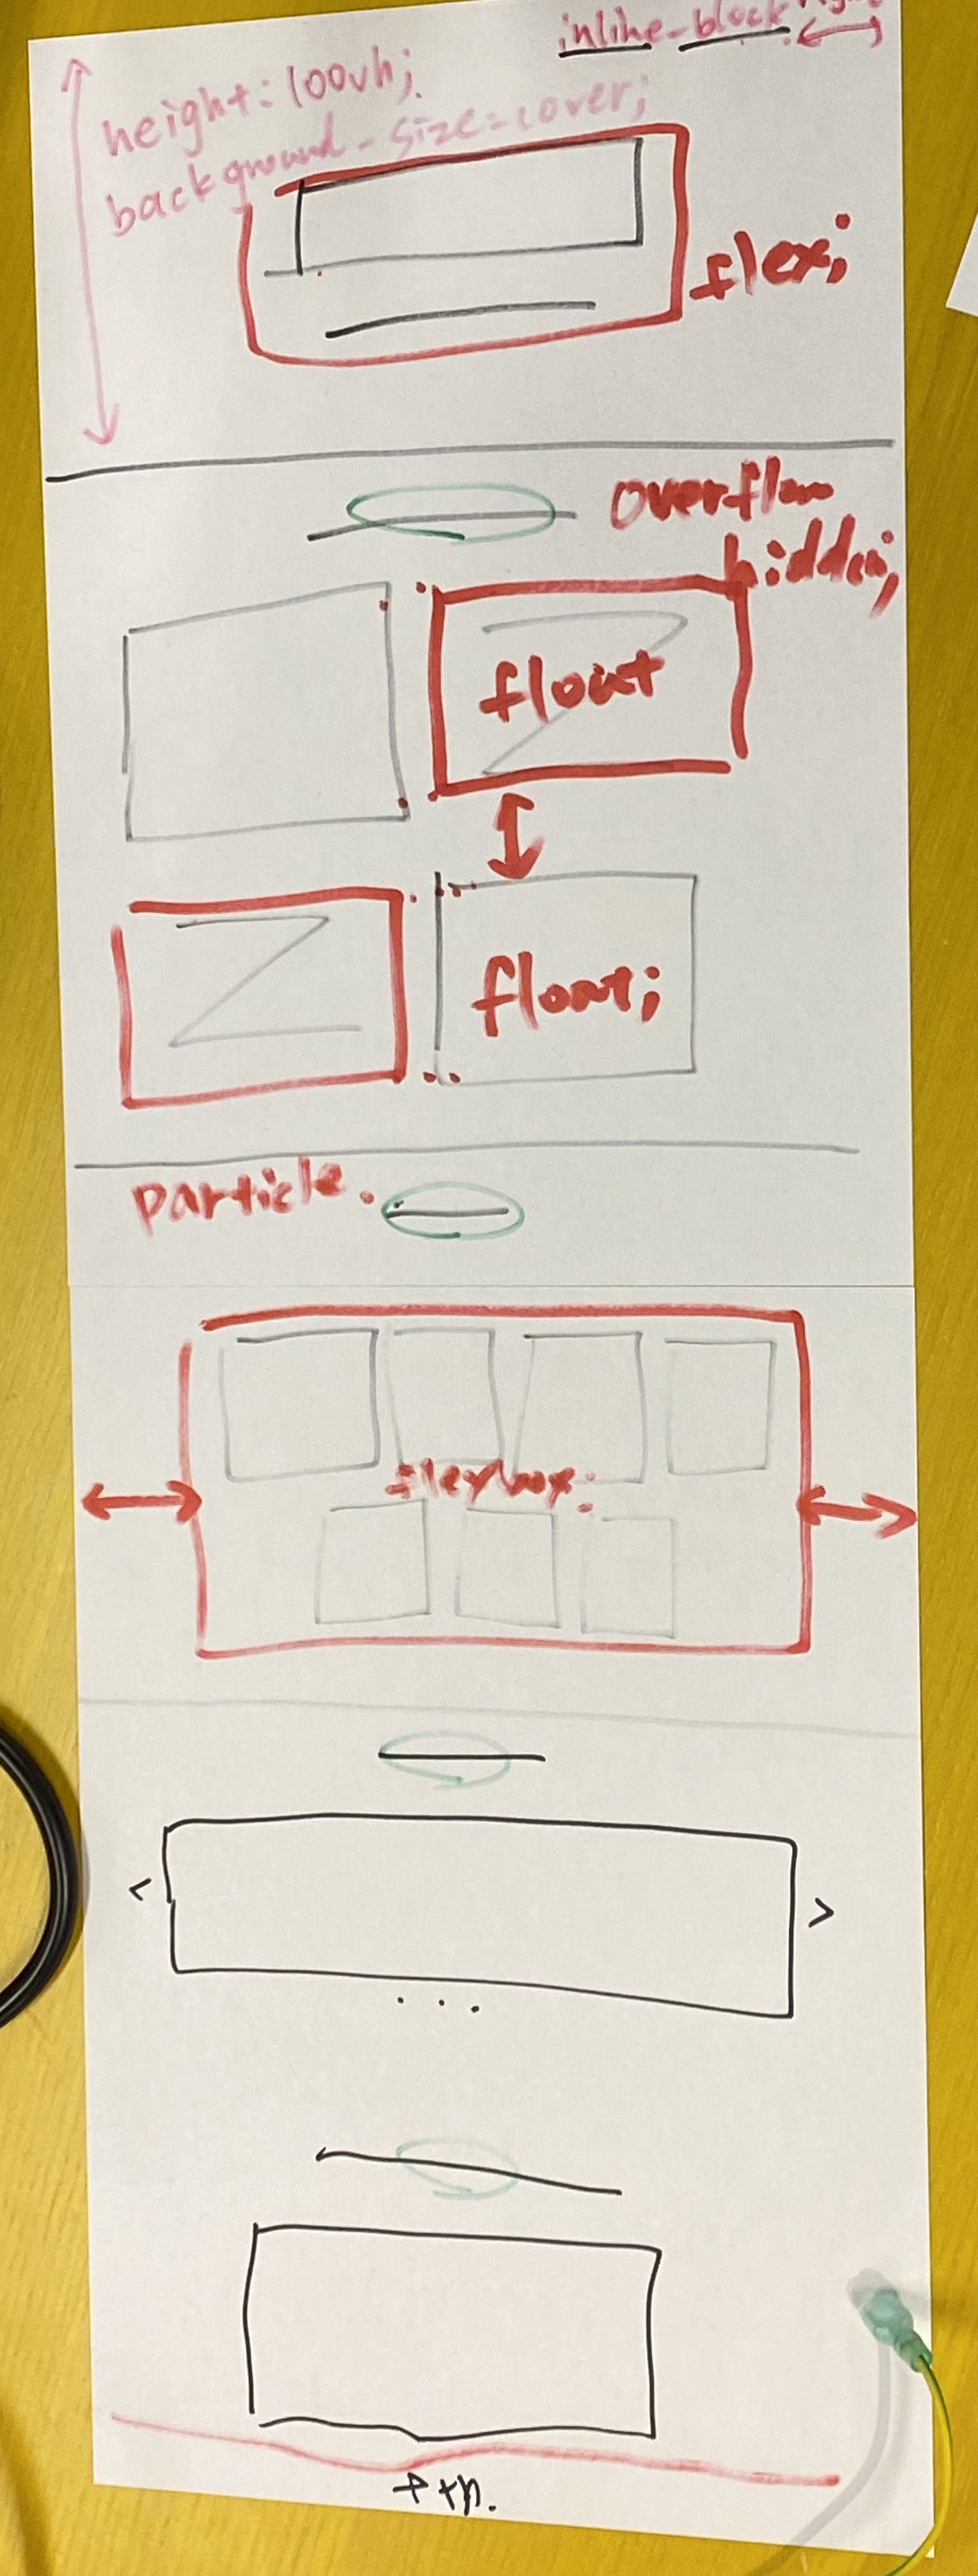 inline-block
height: 100vh;
background-size=cover;
flex;
overflow
hidden;
float
float;
particle.
flexbox;
<
>
...